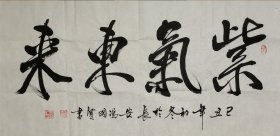 紫氣東来
己丑年初冬於長安馮国書